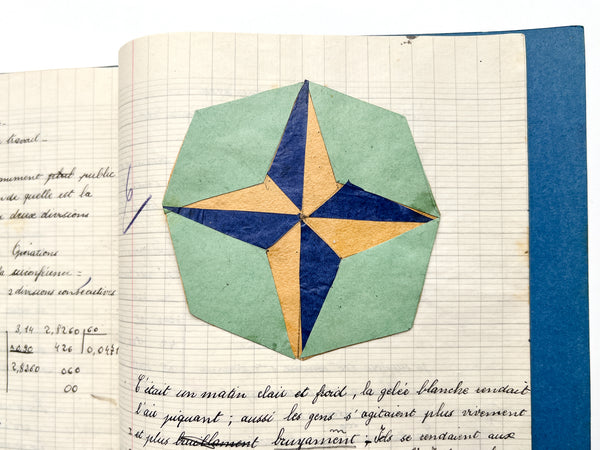 travail -
monument petit public
de quelle est la
deux divisions
Opérations
la circonférence =
2 divisions consécutives
3,14
2,8260 60
0,90
426 0,0471
2,8260
060
00
C'était un matin clair et froid, la gelée blanche rendait
l'air piquant ; aussi les gens s'agitaient plus vivement
et plus bruyamment ; Ils se rendaient aux